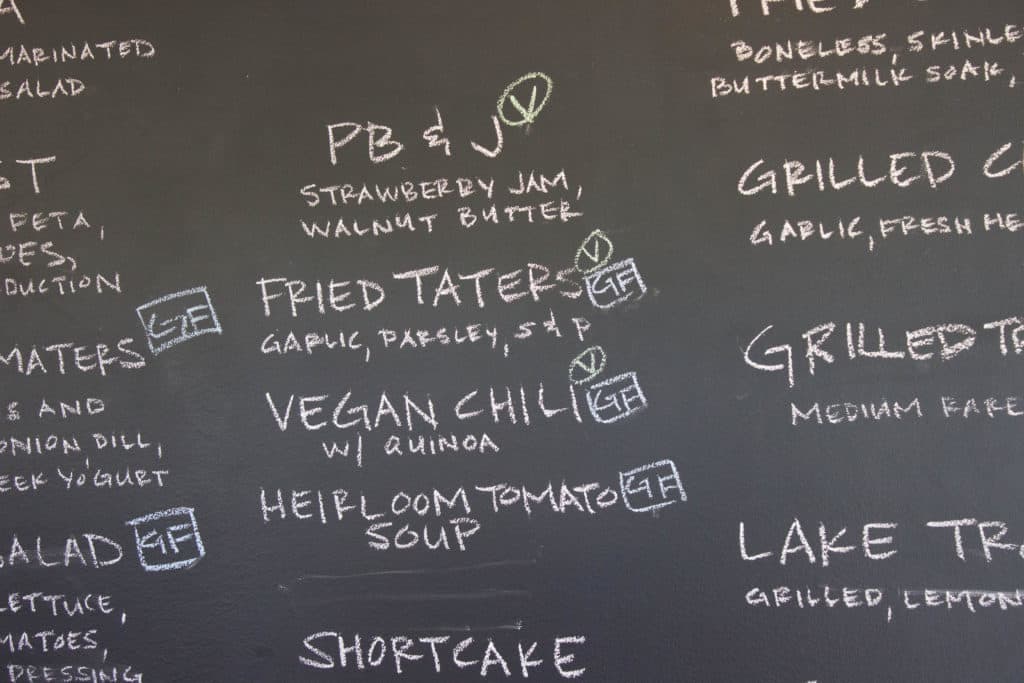 MARINATED
SALAD
FETA,
DUCTION
MATERS GF
AND
ONION DILL,
YOGURT
SALAD GF
LETTUCE,
PB & J V
STRAWBERRY JAM,
WALNUT BUTTER
FRIED TATERS V GF
GARLIC, PARSLEY, S & P
VEGAN CHILI V GF
W/ QUINOA
HEIRLOOM TOMATO GF
SOUP
SHORTCAKE
BONELESS, SKINLE
BUTTERMILK SOAK,
GRILLED C
GARLIC, FRESH HE
GRILLED T
MEDIUM RARE
LAKE TR
GRILLED, LEMON